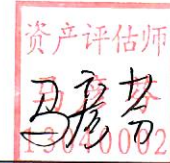 资产评估师
马彦芬
13040002